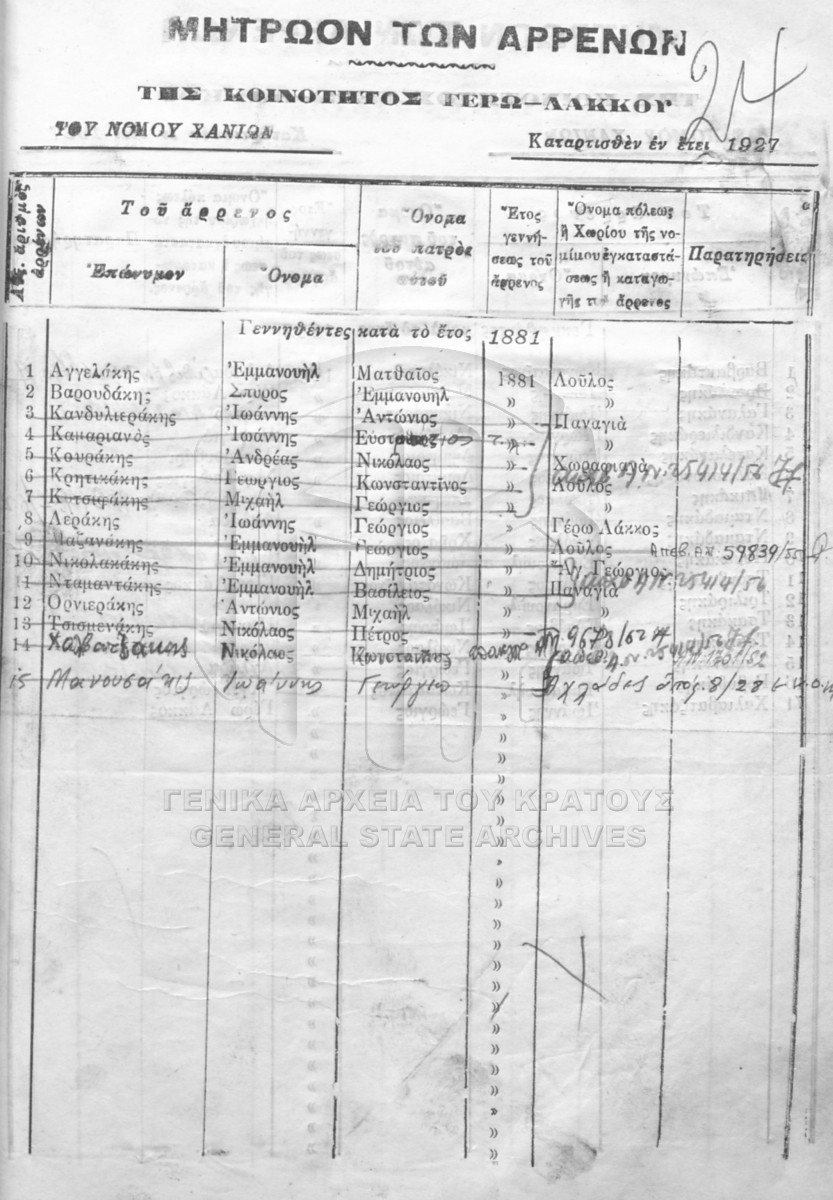 ΜΗΤΡΩΟΝ ΤΩΝ ΑΡΡΕΝΩΝ
24
ΤΗΣ ΚΟΙΝΟΤΗΤΟΣ ΓΕΡΩ—ΛΑΚΚΟΥ
ΤΟΥ ΝΟΜΟΥ ΧΑΝΙΩΝ Καταρτισθὲν ἐν ἔτει 1927
Αὔξ. ἀριθμὸς ἀρρένων
Τοῦ ἄρρενος
Ἐπώνυμον Ὄνομα
Ὄνομα τοῦ πατρὸς αὐτοῦ
Ἔτος γεννήσεως τοῦ ἄρρενος
Ὄνομα πόλεως ἢ Χωρίου τῆς νομίμου ἐγκαταστάσεως ἢ καταγωγῆς τοῦ ἄρρενος
Παρατηρήσεις
Γεννηθέντες κατὰ τὸ ἔτος 1881
1 Αγγελάκης Ἐμμανουὴλ Ματθαῖος 1881 Λοῦλος
2 Βαρουδάκης Σπυρος Ἐμμανουὴλ » »
3 Κανδυλιεράκης Ἰωάννης Ἀντώνιος » Παναγιὰ
4 Καμαριανὸς Ἰωάννης » »
5 Κουράκης Ἀνδρέας Νικόλαος » Χωραφιανὰ
6 Κρητικάκης Γεωργιος Κωνσταντῖνος » Λοῦλος
7 Κυτσιφάκης Μιχαὴλ Γεώργιος » »
8 Λεράκης Ἰωάννης Γεώργιος » Γέρω Λάκκος
9 Μαζανάκης Ἐμμανουὴλ Γεωογιος » Λοῦλος Απεβ. 59839/55
10 Νικολακάκης Ἐμμανουὴλ Δημήτριος » Ἅγ. Γεώργιος
11 Νταμαντάκης Ἐμμανουὴλ Βασίλειος » Παναγιὰ
12 Ορνιεράκης Ἀντώνιος Μιχαὴλ » »
13 Τσισμενάκης Νικόλαος Πέτρος 9678/52
14 Χαβατζακης Νικόλαος Κωνσταντῖνος
15 Μανουσάκις Ιωάννης Γεώργιο 8/28
ΓΕΝΙΚΑ ΑΡΧΕΙΑ ΤΟΥ ΚΡΑΤΟΥΣ
GENERAL STATE ARCHIVES